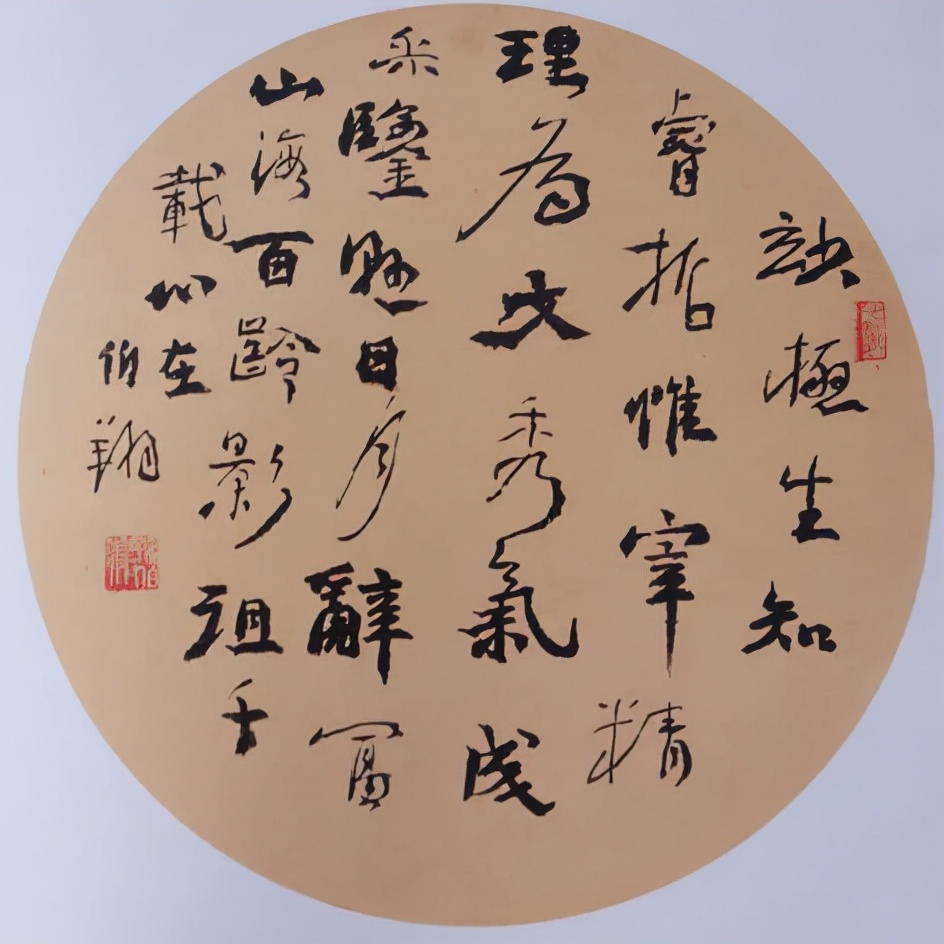 玅極生知
睿哲惟宰精
理為文秀氣成
采鑒懸日月辭富
山海百齡影徂千
載心在
伯翔